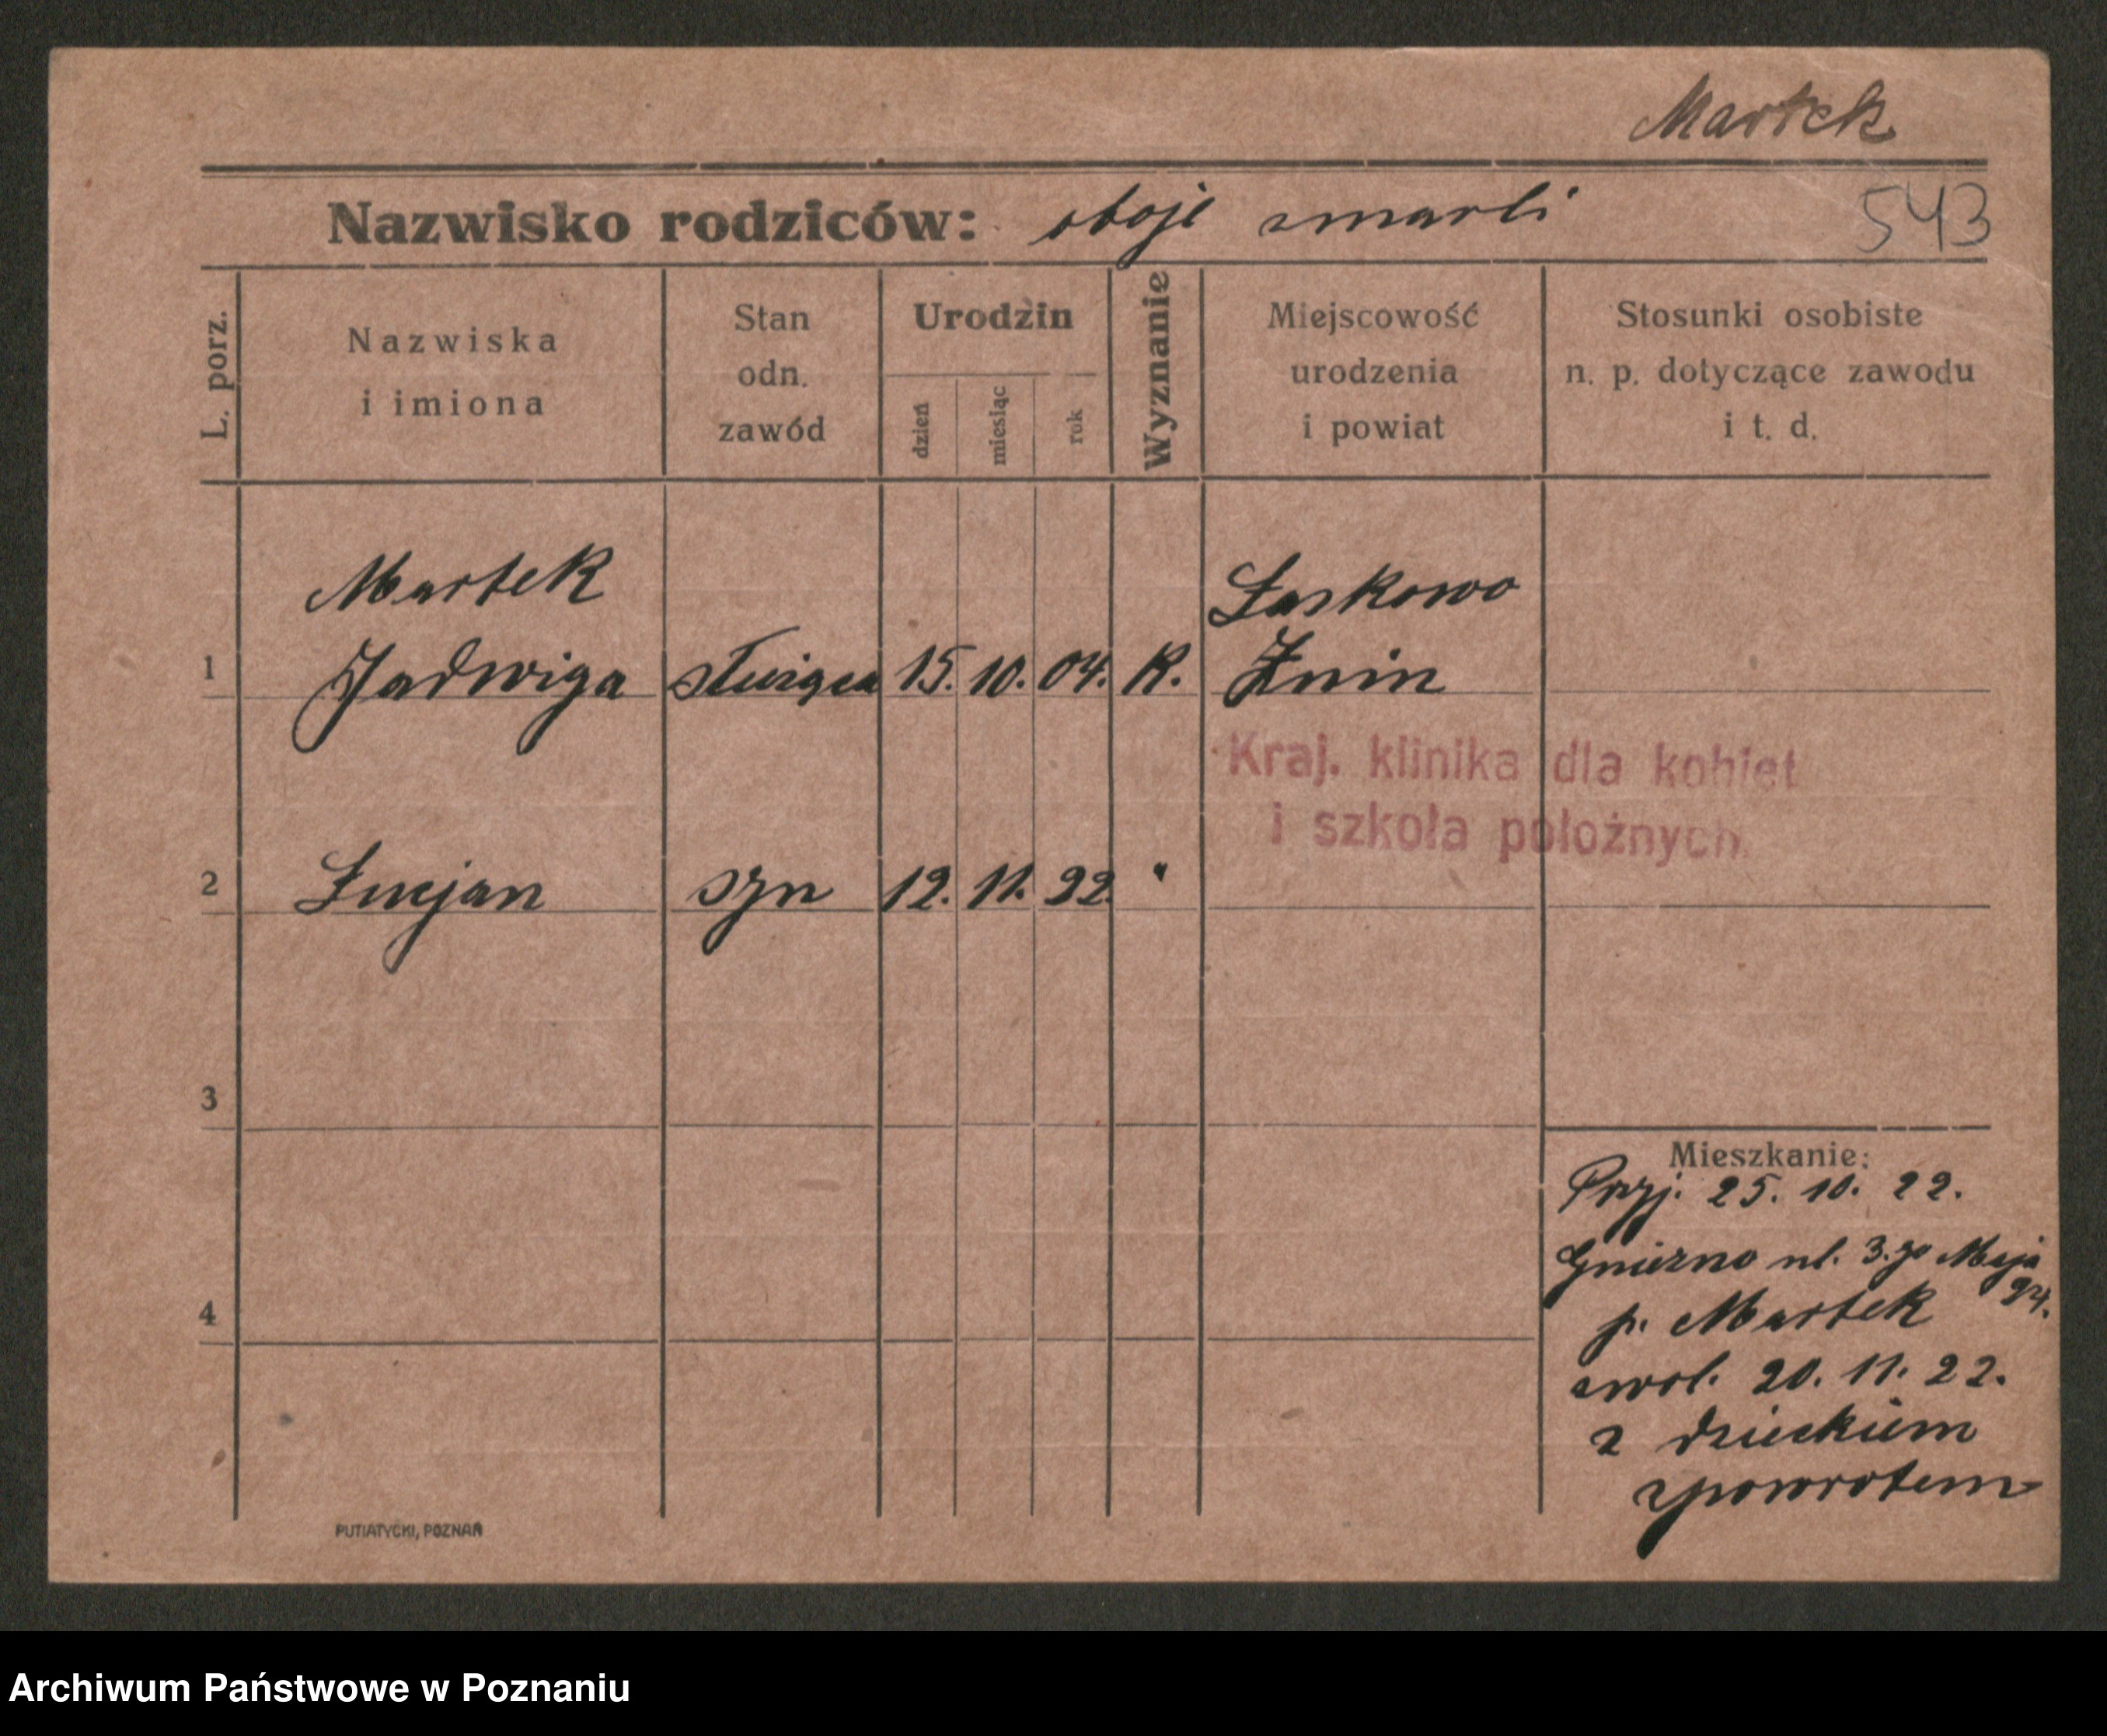 Martek
Nazwisko rodziców: oboje zmarli
543
L. porz.
Nazwiska
i imiona
Stan
odn.
zawód
Urodzin
dzień
miesiąc
rok
Wyznanie
Miejscowość
urodzenia
i powiat
Stosunki osobiste
n. p. dotyczące zawodu
i t. d.
Martek
Łaskowo
1 Jadwiga służąca 15. 10. 04. K. Żnin
Kraj. klinika dla kobiet
i szkoła położnych.
2 Lucjan syn 12. 11. 22. "
3
Mieszkanie:
Przyj. 25. 10. 22.
Gniezno ul. 3.go Maja
24.
4
p. Martek
zwol. 20. 11. 22.
z dzieckiem
zpowrotem
PUTIATYCKI, POZNAŃ
Archiwum Państwowe w Poznaniu